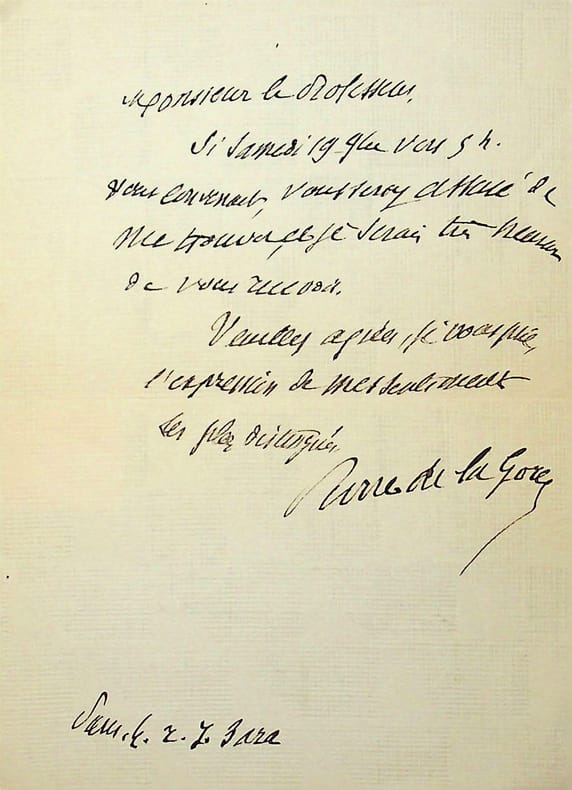 Monsieur le Professeur,
Si Samedi 19 vers 5 h.
vous convenait, vous seriez assuré de
me trouver, et je serais très heureux
de vous recevoir.
Veuillez agréer, je vous prie,
l'expression de mes sentiments
les plus distingués
Pierre de la Gorce
Paris.